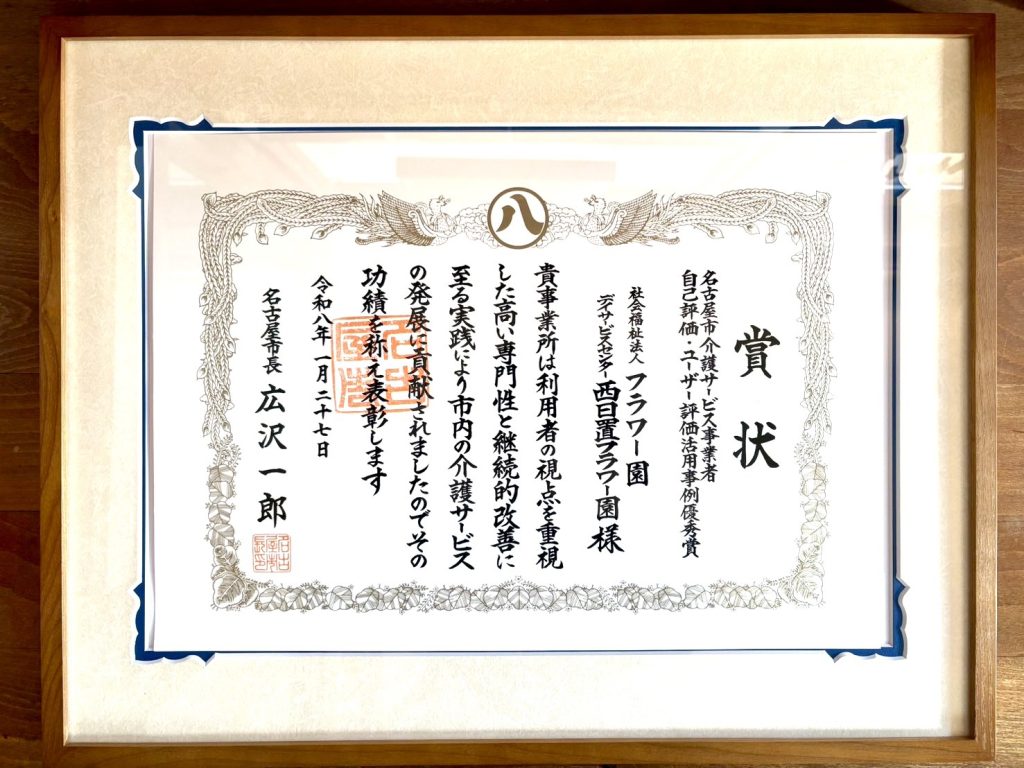 八
賞状
名古屋市介護サービス事業者
自己評価・ユーザー評価活用事例優秀賞
社会福祉法人 フラワー園
デイサービスセンター 西日置フラワー園 様
貴事業所は利用者の視点を重視
した高い専門性と継続的改善に
至る実践により市内の介護サービス
の発展に貢献されましたのでその
功績を称え表彰します
令和八年一月二十七日
名古屋市長 広沢一郎
名古屋市長印